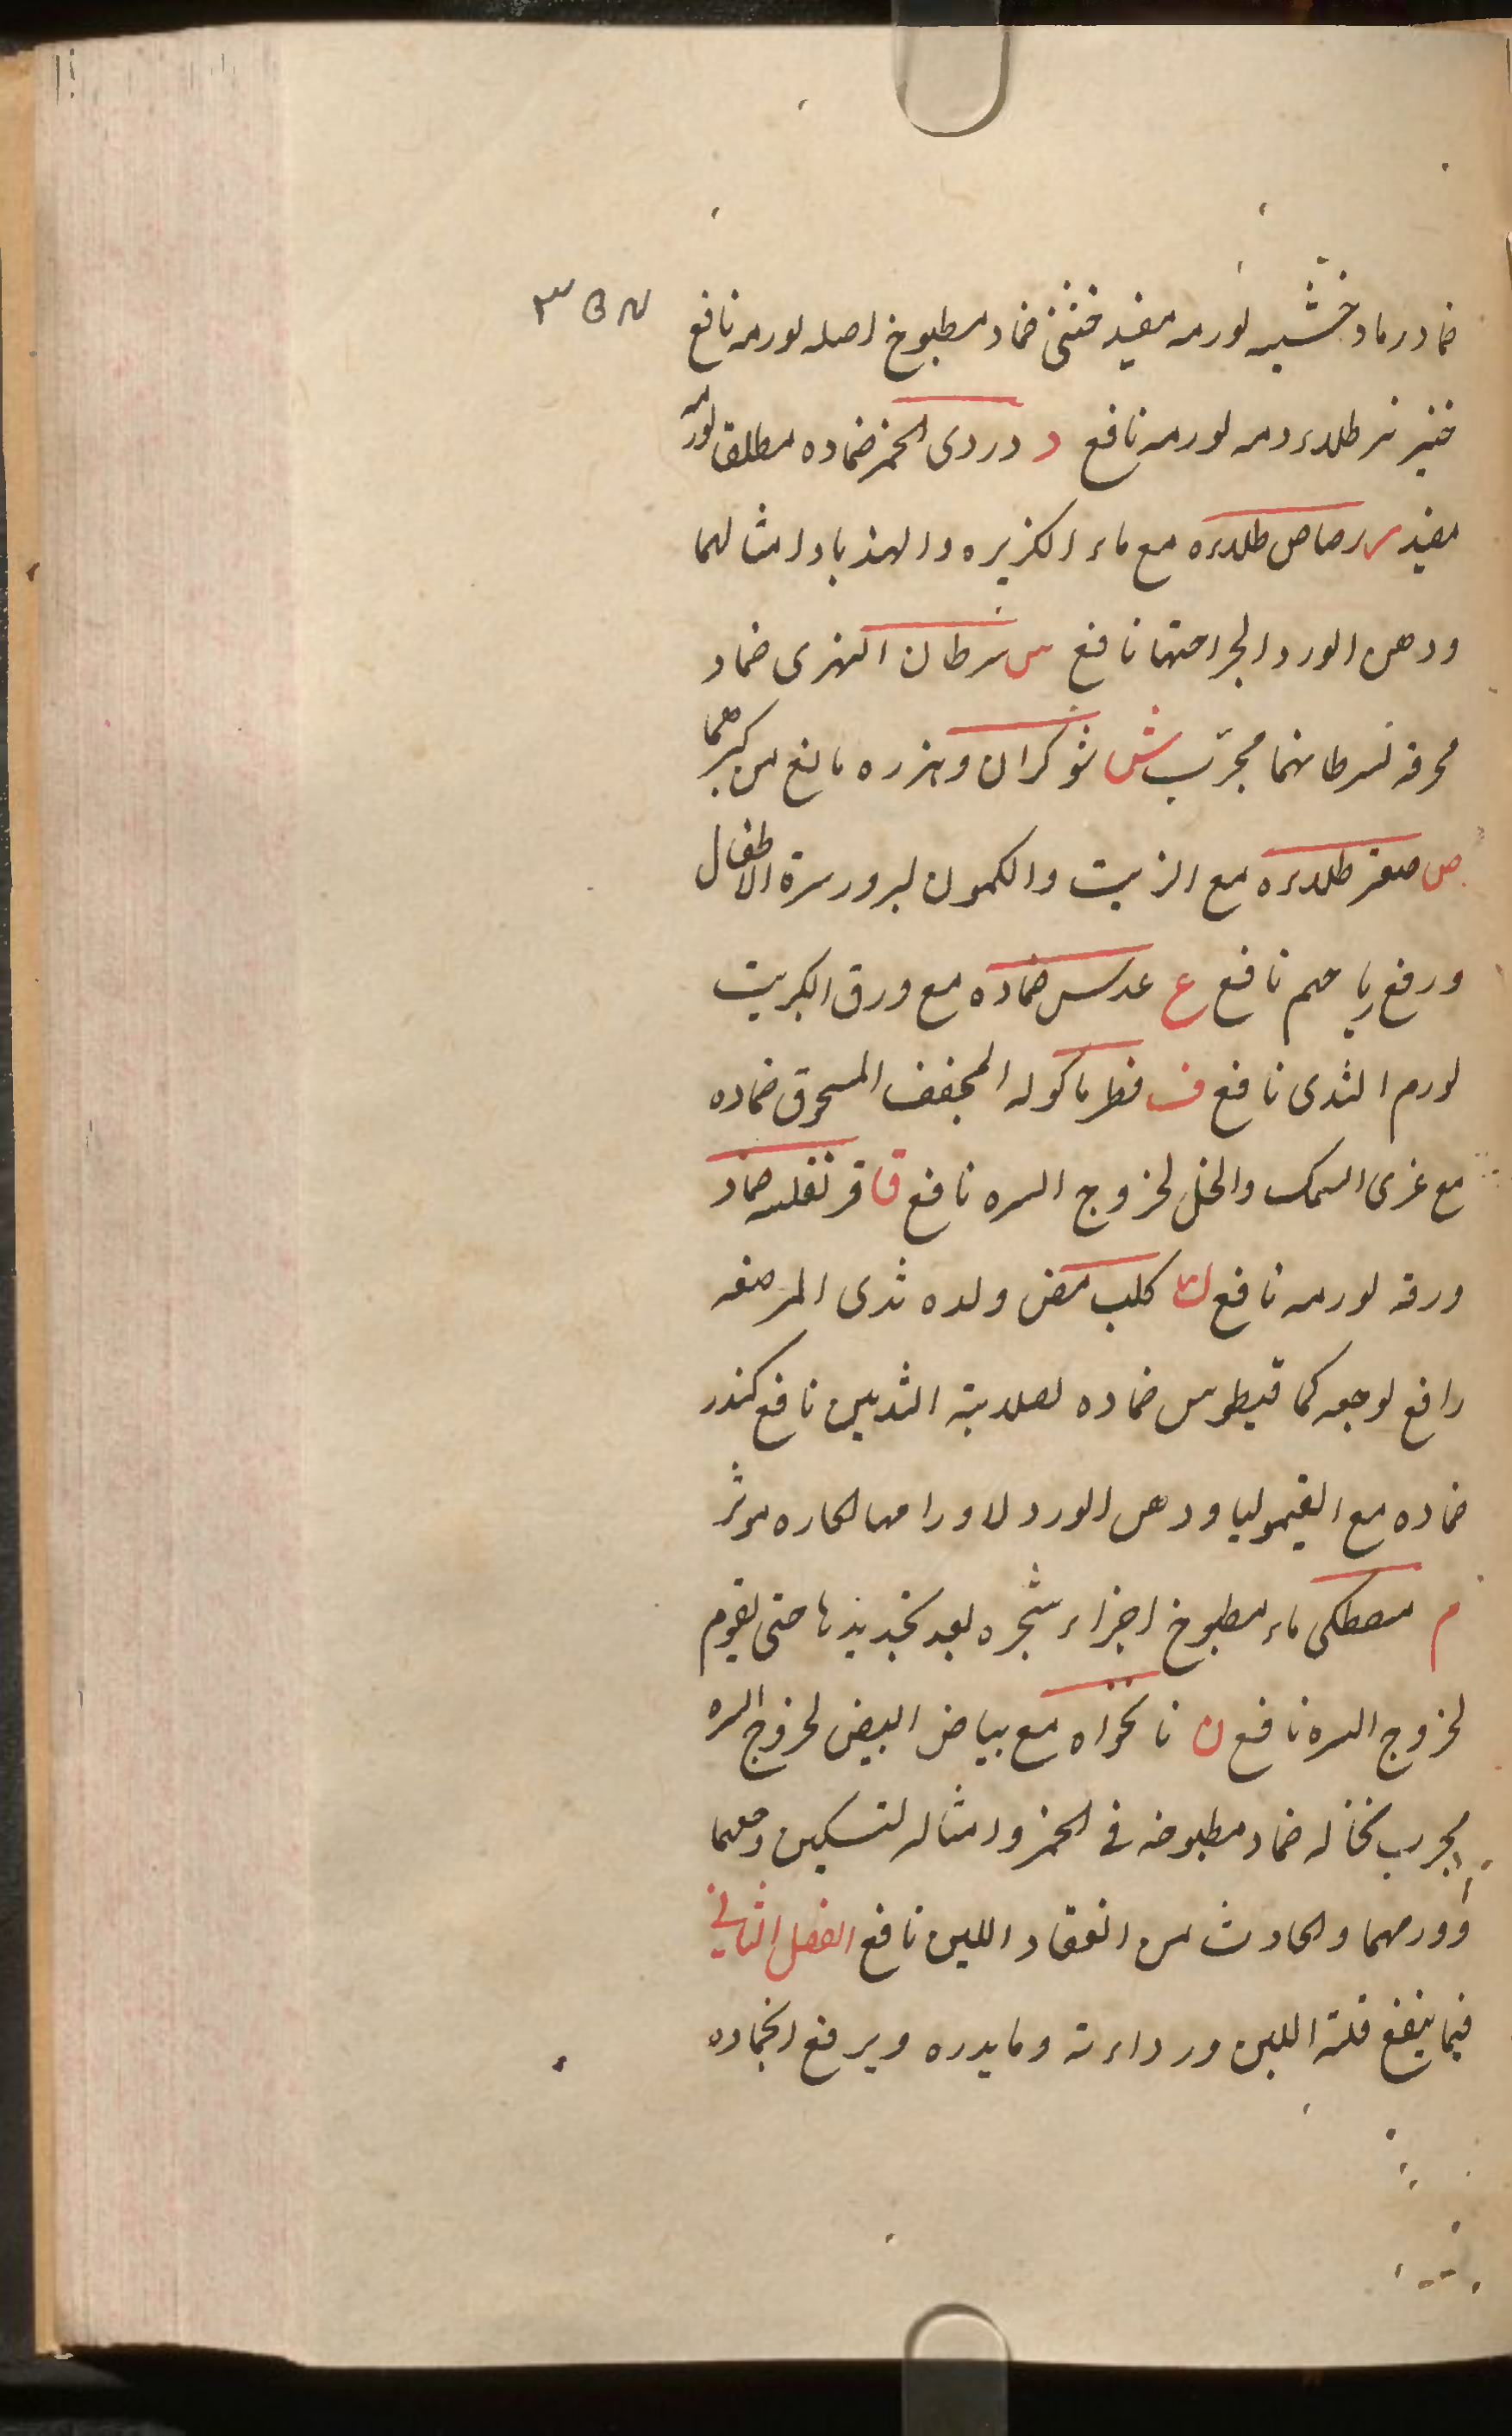 ضماد رماد خشبه لورمه مفيد خنثى ضماد مطبوخ اصله لورمه نافع
خنزير طلاء دمه لورمه نافع د دردى الخمر ضماده مطلقا لورمه
مفيد ر رصاص طلاءه مع ماء الكزبره والهندبا وامثالهما
ودهن الورد لجراحتها نافع س سرطان النهرى ضماد
محرقه لسرطانهما مجرّب ش شوكران وبزره مانع من كبرهما
ص صعتر طلاءه مع الزيت والكمون لبرور سرة الاطفال
ورفع رياحهم نافع ع عدس ضماده مع ورق الكبريت
لورم الثدى نافع ف فطر ماكوله المجفف المسحوق ضماده
مع غرى السمك والخل لخروج السره نافع ق قرنفليه ضماد
ورقه لورمه نافع ك كلب مص ولده ثدى المرضعه
رافع لوجعه كماقيطوس ضماده لصلابة الثديين نافع كندر
ضماده مع القيموليا ودهن الورد لاورامها الحاره موثر
م مصطكى ماء مطبوخ اجزاء شجره بعد تجديدها حتى يقوم
لخروج السره نافع ن نانخواه مع بياض البيض لخروج السره
مجرب نخاله ضماد مطبوخه فى الخمر وامثاله لتسكين وجعهما
وورمهما والحادث من انعقاد اللبن نافع الفصل الثانى
فيما ينفع قلة اللبن ورداءته وما يدره ويرفع انجماده